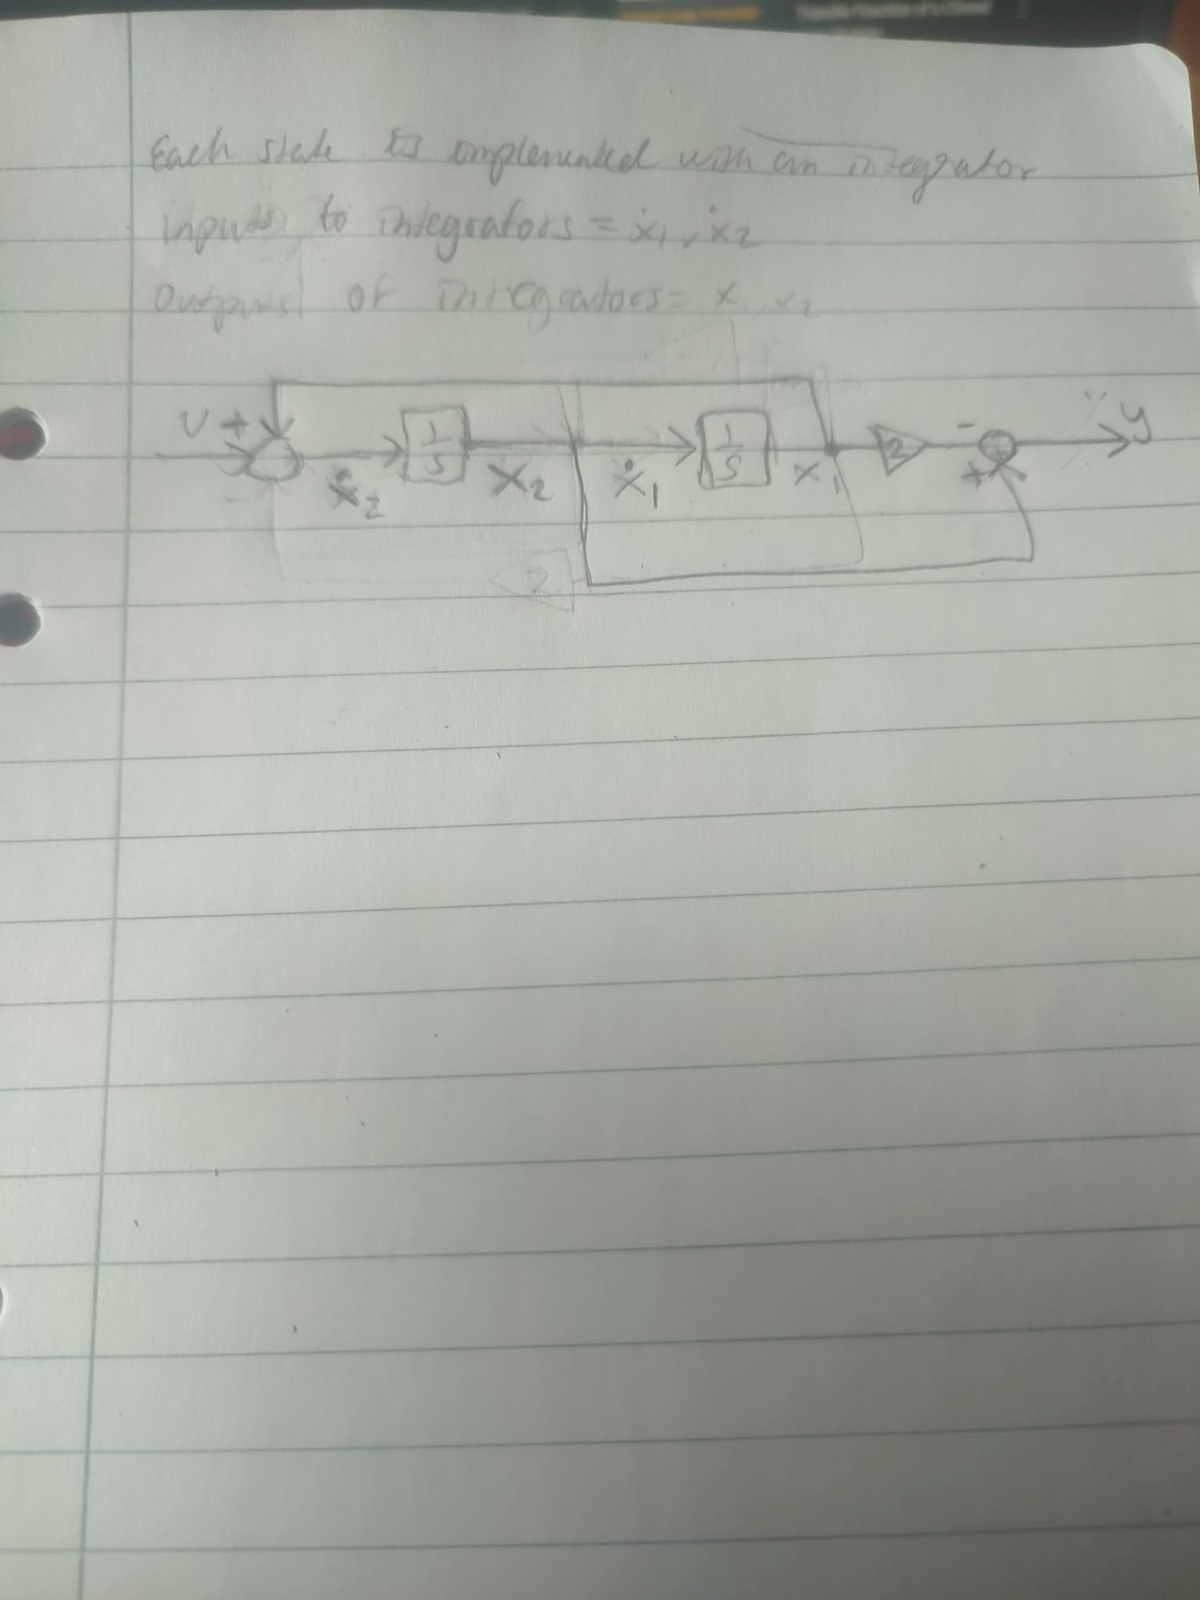 Each state is implemented with an integrator
inputs to integrators = ẋ₁, ẋ₂
Outputs of integrators = x₁, x₂
U + - ẋ₂ 1/S X₂ ẋ₁ 1/S X₁ 2 - + y
2